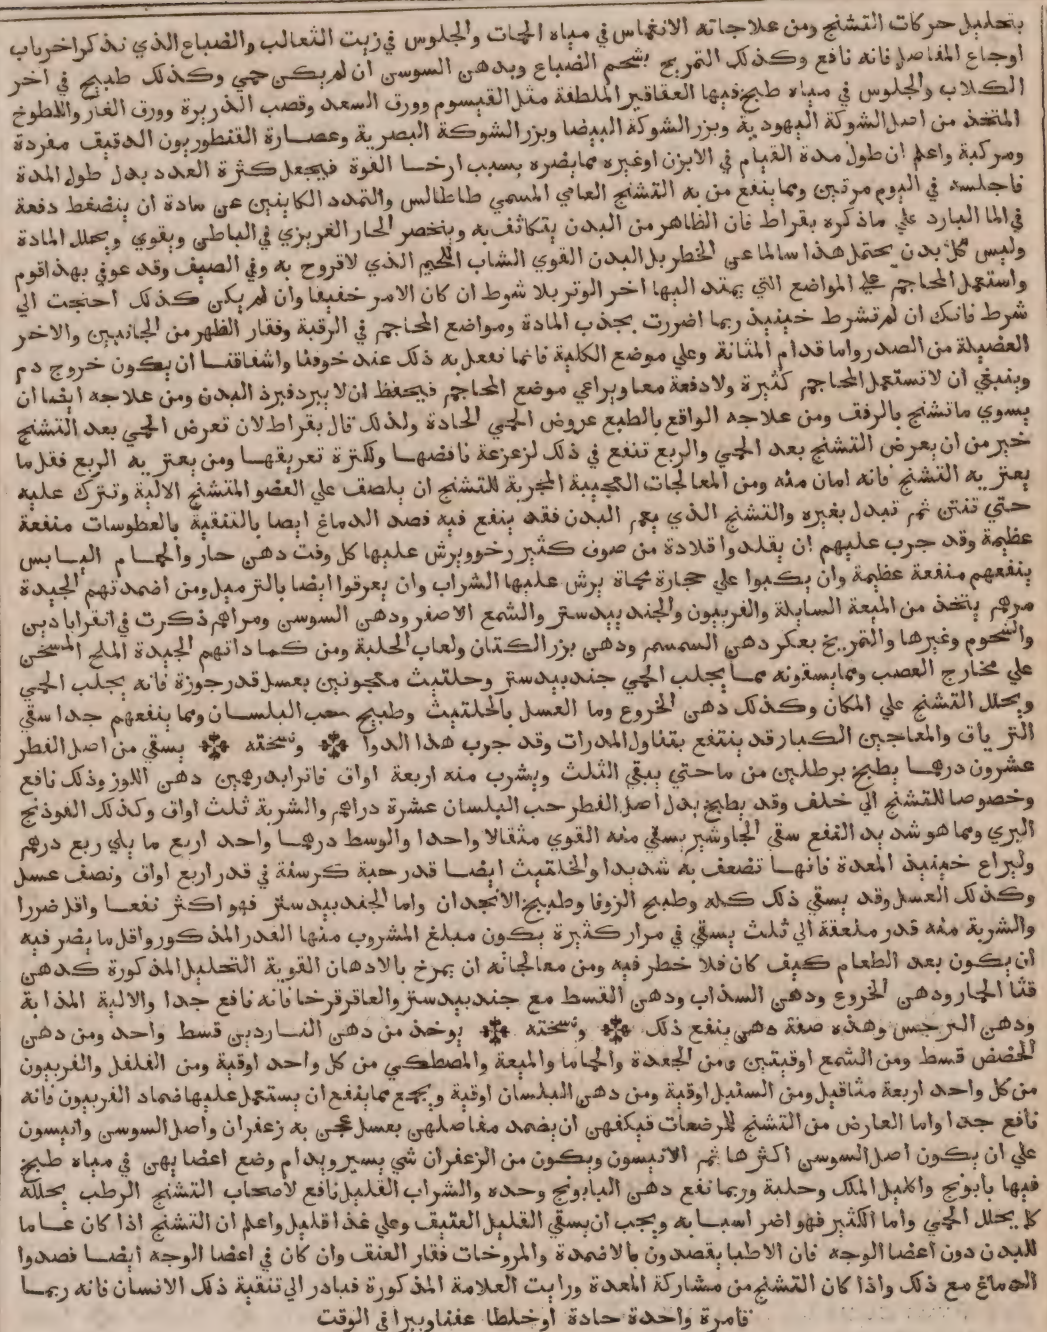 بتحليل حركات التشنج ومن علاجاته الانغماس في مياه الحمات والجلوس في زيت الثعالب والضباع الذي نذكر اخر باب
اوجاع المفاصل فانه نافع وكذلك التمريخ بشحم الضباع وبدهن السوسن ان لم يكن حمي وكذلك طبيخ في اخر
الكلاب والجلوس في مياه طبخ فيها العقاقير الملطفة مثل القيسوم وورق السعد وقصب الذريرة وورق الغار واللطوخ
المتخذ من اصل الشوكة اليهودية وبزر الشوكة البيضا وبزر الشوكة البصرية وعصارة القنطوريون الدقيق مفردة
ومركبة واعلم ان طول مدة القيام في الابزن اوغيره مما يضره بسبب ارخا القوة فيجعل كثرة العدد بدل طول المدة
فاجلسه في اليوم مرتين ومما ينفع من به التشنج العامي المسمي طاطالس والتمدد الكاينين عن مادة ان ينضغط دفعة
في الما البارد علي ما ذكره بقراط فان الظاهر من البدن يتكاثف به وينحصر الحار الغريزي في الباطن ويقوي ويحلل المادة
وليس كل بدن يحتمل هذا سالما عن الخطر بل البدن القوي الشاب اللحيم الذي لا قروح به وفي الصيف وقد عوفي بهذا قوم
واستعمل المحاجم علي المواضع التي يمتد اليها اخر الوتر بلا شرط ان كان الامر خفيفا وان لم يكن كذلك احتجت الي
شرط فانك ان لم تشرط حينيذ ربما اضررت بجذب المادة ومواضع المحاجم في الرقبة وفقار الظهر من الجانبين والاخر
العضيلة من الصدر واما قدام المثانة وعلي موضع الكلية فانما نفعل به ذلك عند خوفنا واشفاقنا ان يكون خروج دم
وينبغي ان لا تستعمل المحاجم كثيرة ولا دفعة معا ويراعي موضع المحاجم فيحفظ ان لا يبرد فيبرد البدن ومن علاجه ايضا ان
يسوي ما تشنج بالرفق ومن علاجه الواقع بالطبع عروض الحمي الحادة ولذلك قال بقراط لان تعرض الحمي بعد التشنج
خير من ان يعرض التشنج بعد الحمي والربع تنفع في ذلك لزعزعة نافضها ولكثرة تعريقها ومن يعتريه الربع فقل ما
يعتريه التشنج فانه امان منه ومن المعالجات العجيبة المجربة للتشنج ان يلصق علي العضو المتشنج الالية وتترك عليه
حتي تنتن ثم تبدل بغيره والتشنج الذي يعم البدن فقد ينفع فيه فصد الدماغ ايضا بالتنقية بالعطوسات منفعة
عظيمة وقد جرب عليهم ان يقلدوا قلادة من صوف كثير رخو ويرش عليها كل وقت دهن حار والحمام اليابس
ينفعهم منفعة عظيمة وان يكبوا علي حجارة محماة يرش عليها الشراب وان يعرقوا ايضا بالترميل ومن اضمدتهم الجيدة
مرهم يتخذ من الميعة السايلة والفربيون والجندبيدستر والشمع الاصفر ودهن السوسن ومراهم ذكرت في انقراباذين
والشحوم وغيرها والتمريخ بعكر دهن السمسم ودهن بزر الكتان ولعاب الحلبة ومن كماداتهم الجيدة الملح المسخن
علي مخارج العصب ومما يسقونه مما يجلب الحمي جندبيدستر وحلتيت معجونين بعسل قدر جوزة فانه يجلب الحمي
ويحلل التشنج علي المكان وكذلك دهن الخروع وما العسل بالحلتيت وطبيخ حب البلسان ومما ينفعهم جدا سقي
الترياق والمعاجين الكبار قد ينتفع بتناول المدرات وقد جرب هذا الدوا ونسخته يسقي من اصل الفطر
عشرون درهما يطبخ برطلين من ما حتي يبقي الثلث ويشرب منه اربعة اواق فاترا بدرهمين دهن اللوز وذلك نافع
وخصوصا للتشنج الي خلف وقد يطبخ بدل اصل الفطر حب البلسان عشرة دراهم والشربة ثلث اواق وكذلك الفوذنج
البري ومما هو شديد النفع سقي الجاوشير يسقي منه القوي مثقالا واحدا والوسط درهما واحد اربع ما يلي ربع درهم
وليراع حينيذ المعدة فانها تضعف به شديدا والحلتيت ايضا قدر حبة كرسنة في قدر اربع اواق ونصف عسل
وكذلك العسل وقد يسقي ذلك كله وطبيخ الزوفا وطبيخ الانجدان واما الجندبيدستر فهو اكثر نفعا واقل ضررا
والشربة منه قدر ملعقة الي ثلث يسقي في مرار كثيرة يكون مبلغ المشروب منها القدر المذكور واقل ما يضر فيه
ان يكون بعد الطعام كيف كان فلا خطر فيه ومن معالجاته ان يمرخ بالادهان القوية التحليل المذكورة كدهن
قثا الحمار ودهن الخروع ودهن السذاب ودهن القسط مع جندبيدستر والعاقرقرحا فانه نافع جدا والالية المذابة
ودهن النرجس وهذه صفة دهن ينفع ذلك ونسخته يوخذ من دهن الناردين قسط واحد ومن دهن
الحضض قسط ومن الشمع اوقيتين ومن الجعدة والحماما والميعة والمصطكي من كل واحد اوقية ومن الفلفل والفربيون
من كل واحد اربعة مثاقيل ومن السنبل اوقية ومن دهن البلسان اوقية ويجمع مما ينفع ان يستعمل عليها ضماد الفربيون فانه
نافع جدا واما العارض من التشنج للمرضعات فيكفهن ان يضمد مفاصلهن بعسل عجن به زعفران واصل السوسن وانيسون
علي ان يكون اصل السوسن اكثرها ثم الانيسون ويكون من الزعفران شي يسير ويدام وضع اعضايهن في مياه طبخ
فيها بابونج واكليل الملك وحلبة وربما نفع دهن البابونج وحده والشراب القليل نافع لاصحاب التشنج الرطب يحلله
كما يحلل الحمي واما الكثير فهو اضر اسبابه ويجب ان يسقي القليل العتيق وعلي غذا قليل واعلم ان التشنج اذا كان عاما
للبدن دون اعضا الوجه فان الاطبا يقصدون بالاضمدة والمروخات فقار العنق وان كان في اعضا الوجه ايضا فصدوا
الدماغ مع ذلك واذا كان التشنج من مشاركة المعدة ورايت العلامة المذكورة فبادر الي تنقية ذلك الانسان فانه ربما
قا مرة واحدة حادة اوخلطا عفنا ويبرا في الوقت